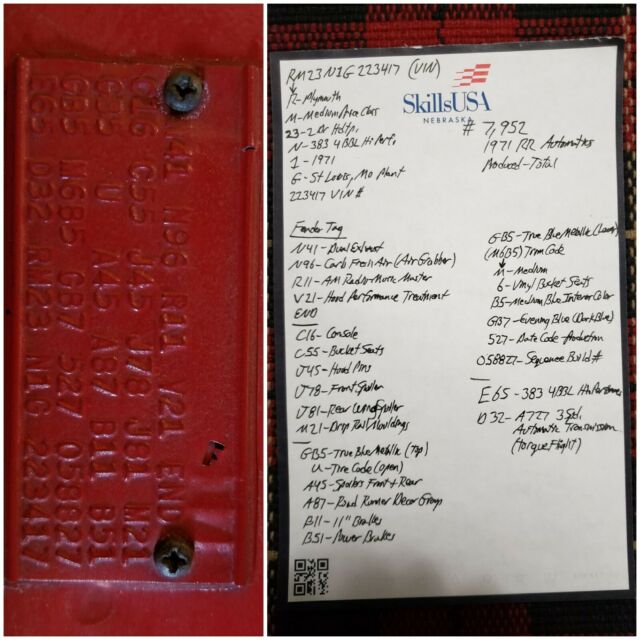 N41 N96 R11 V21 END
C16 C55 J45 J78 J81 M21
GB5 U A45 A87 B11 B51
GB5 M6B5 GB7 527 058827
E65 D32 RM23 N1G 223417
RM23N1G223417 (VIN)
R-Plymouth
M-Medium Price Class
23-2 Dr Hdtp.
N-383 4BBL Hi Perf.
1-1971
G-St Louis, Mo Plant
223417 VIN #
SkillsUSA
NEBRASKA
# 7,952
1971 RR Automatics
Produced-Total
Fender Tag
N41-Dual Exhaust
N96-Carb Fresh Air (Air Grabber)
R11-AM Radio-Music Master
V21-Hood Performance Treatment
END
C16-Console
C55-Bucket Seats
J45-Hood Pins
J78-Front Spoiler
J81-Rear Wing Spoiler
M21-Drip Rail Mouldings
GB5-True Blue Metallic (Top)
U-Tire Code (open)
A45-Spoilers Front + Rear
A87-Road Runner Decor Group
B11-11" Brakes
B51-Power Brakes
GB5-True Blue Metallic (Lower)
(M6B5) Trim Code
M-Medium
6-Vinyl Bucket Seats
B5-Medium Blue Interior Color
GB7-Evening Blue (Dark Blue)
527-Date Code-Production
058827-Sequence Build #
E65-383 4BBL Hi Performance
D32-A727 3 Spd.
Automatic Transmission
(torqueflight)